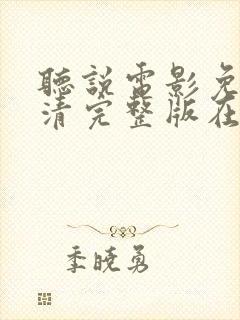 聽說電影免
清完整版在
季曉勇